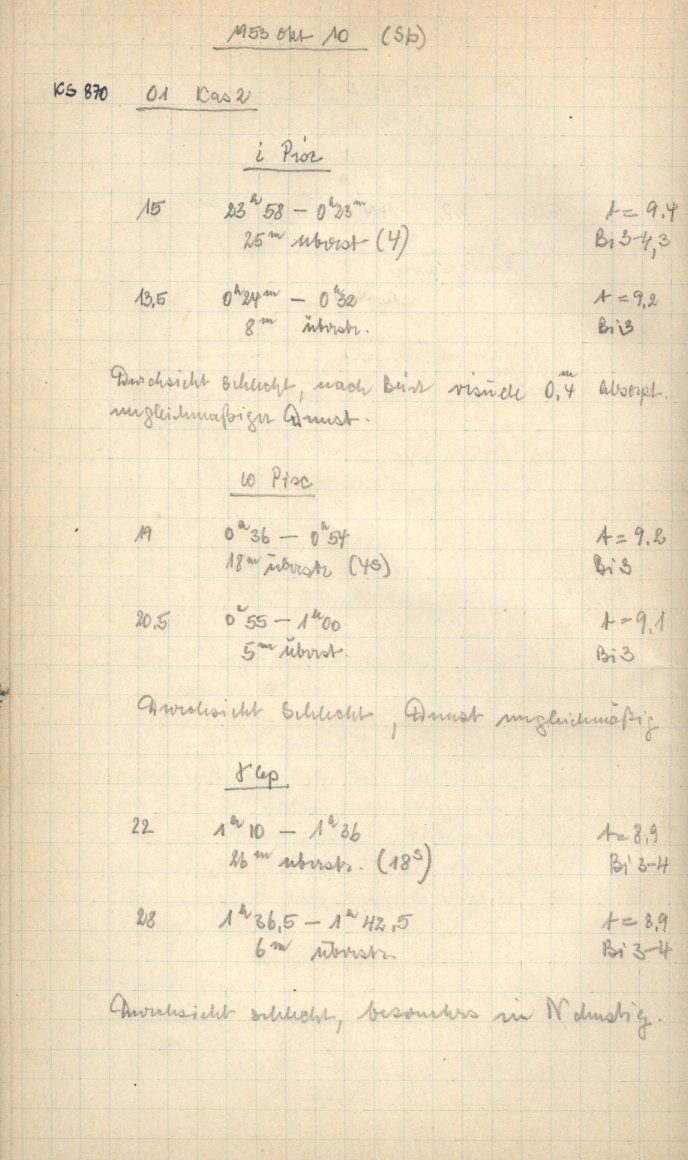 1953 Okt 10 (Sb)
KS 870 01 Kas 2
i Pisc
15 23ʰ58 – 0ʰ23ᵐ t = 9.4
25ᵐ überst (4) Bi 3-4,3
13,5 0ʰ24ᵐ – 0ʰ32 t = 9,2
8ᵐ überstr. Bi 3
Durchsicht schlecht, nach visuell 0,ᵐ4 Absorpt.
ungleichmäßiger Dunst.
ω Pisc
19 0ʰ36 – 0ʰ54 t = 9.2
18ᵐ überstr (4s) Bi 3
20,5 0ʰ55 – 1ʰ00 t = 9,1
5ᵐ überst. Bi 3
Durchsicht schlecht, Dunst ungleichmäßig
γ Cep
22 1ʰ10 – 1ʰ36 t = 8,9
26ᵐ überstr. (18ˢ) Bi 3-4
28 1ʰ36,5 – 1ʰ42,5 t = 8,9
6ᵐ überstr. Bi 3-4
Durchsicht schlecht, besonders im N dunstig.